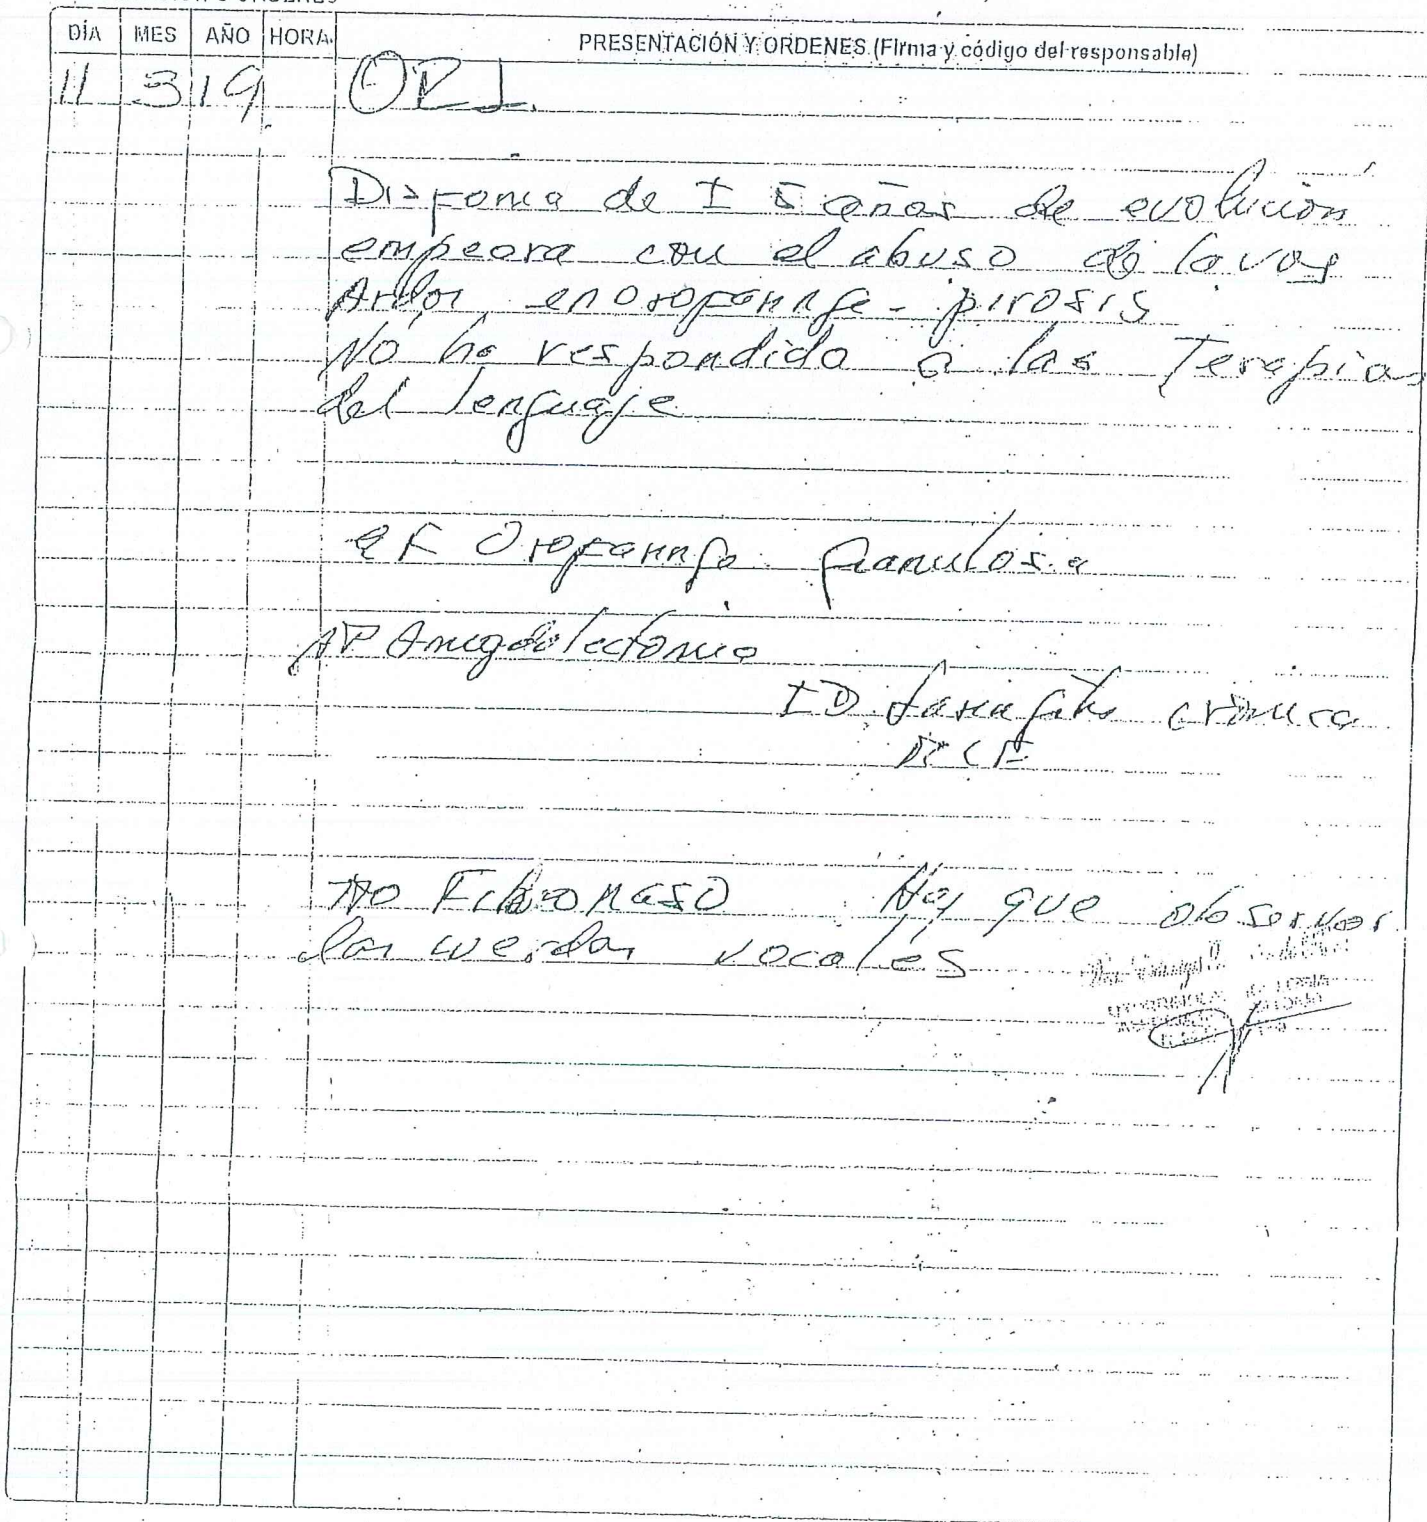 DÍA MES AÑO HORA PRESENTACIÓN Y ORDENES (Firma y código del responsable)
11 3 19 ORL
Disfonia de ± 5 años de evolución
empeora con el abuso de la voz
Ardor en orofaringe - pirosis
No ha respondido a las Terapias
del lenguaje
EF Orofaringe granulosa
AP Amigdalectomia
ID Laringitis crónica
TTO Fibronaso Hay que observar
las cuerdas vocales